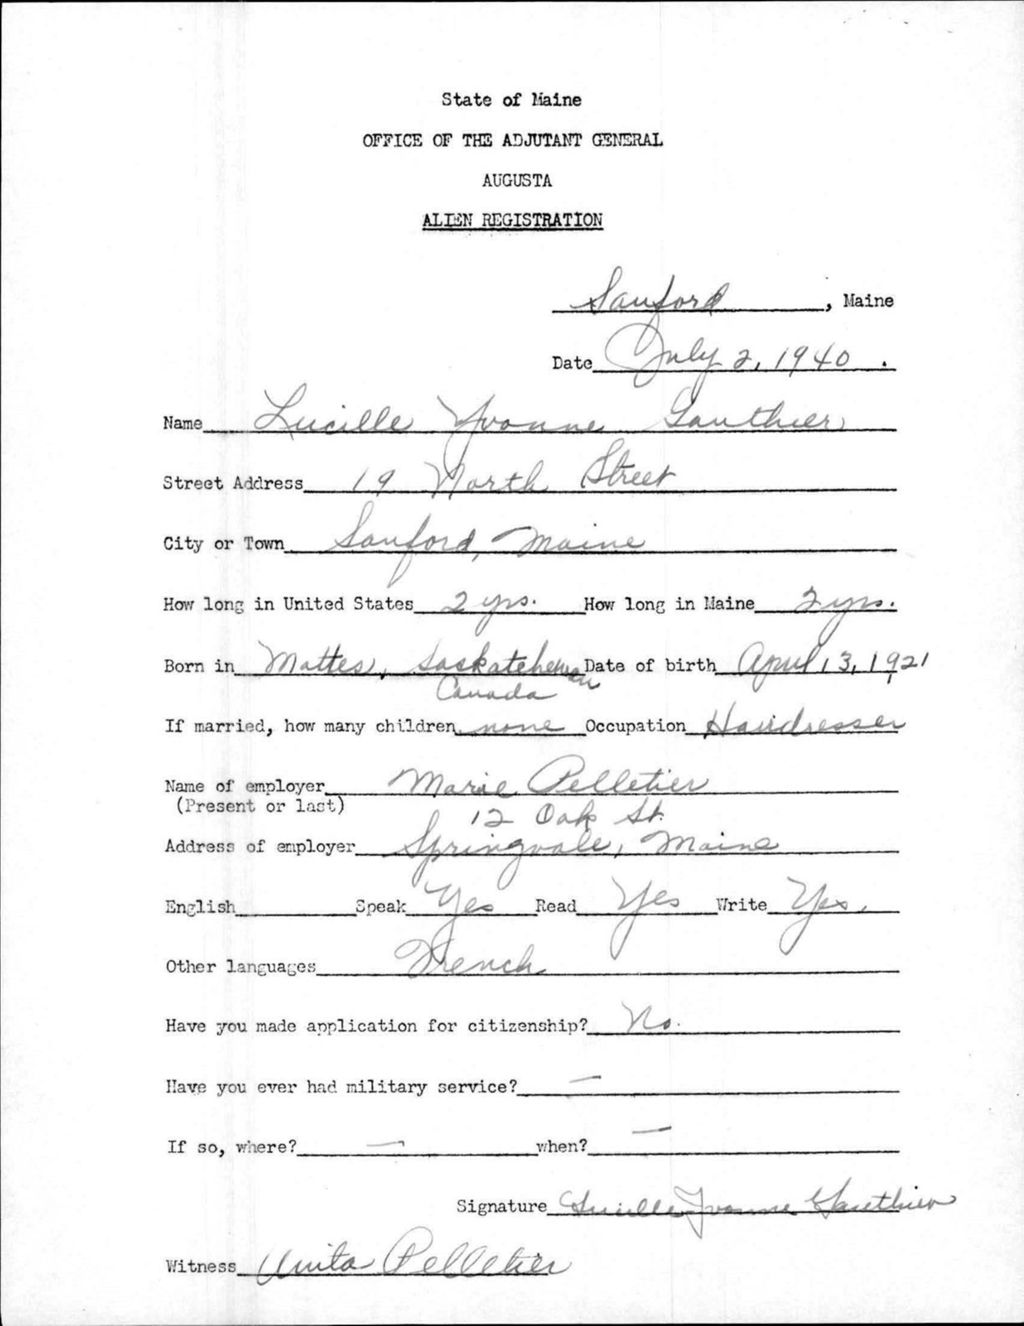 State of Maine
OFFICE OF THE ADJUTANT GENERAL
AUGUSTA
ALIEN REGISTRATION
Sanford, Maine
Date July 2, 1940.
Name Lucille Yvonne Gauthier
Street Address 19 North Street
City or Town Sanford, Maine
How long in United States 2 yrs. How long in Maine 2 yrs.
Born in Mattes, Saskatchewan Date of birth April 13, 1921
Canada
If married, how many children none Occupation Hairdresser
Name of employer Marie Pelletier
(Present or last)
12 Oak St.
Address of employer Springvale, Maine
English Speak Yes Read Yes Write Yes.
Other languages French
Have you made application for citizenship? No.
Have you ever had military service? —
If so, where? — when? —
Signature Lucille Yvonne Gauthier
Witness Anita Pelletier